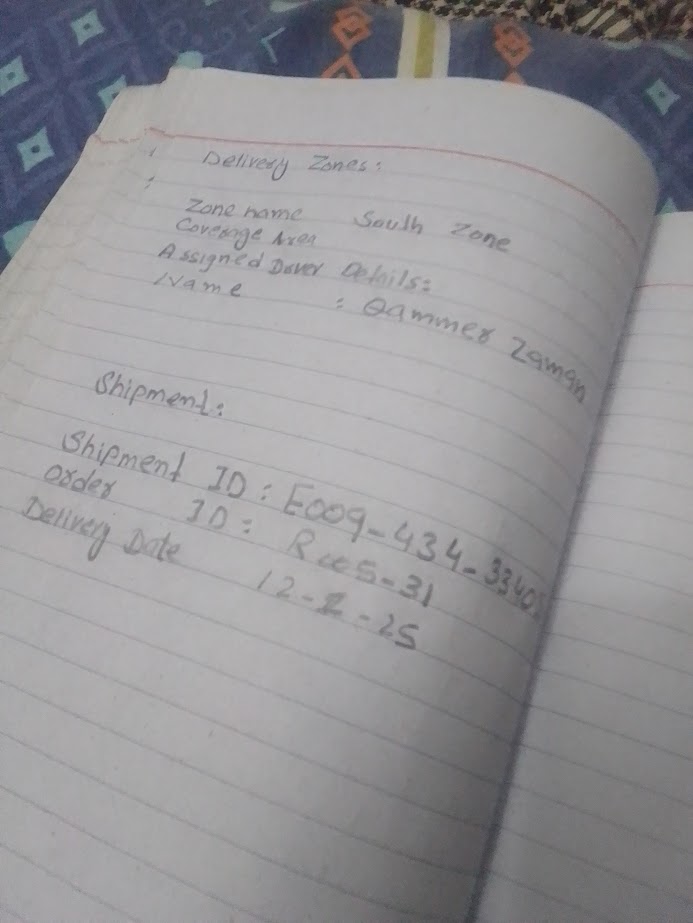 Delivery Zones:
Zone name South Zone
Coverage Area
Assigned Driver Details:
Name : Qammer Zaman
Shipment:
Shipment ID : E009-434-3340
Order ID :
Delivery Date